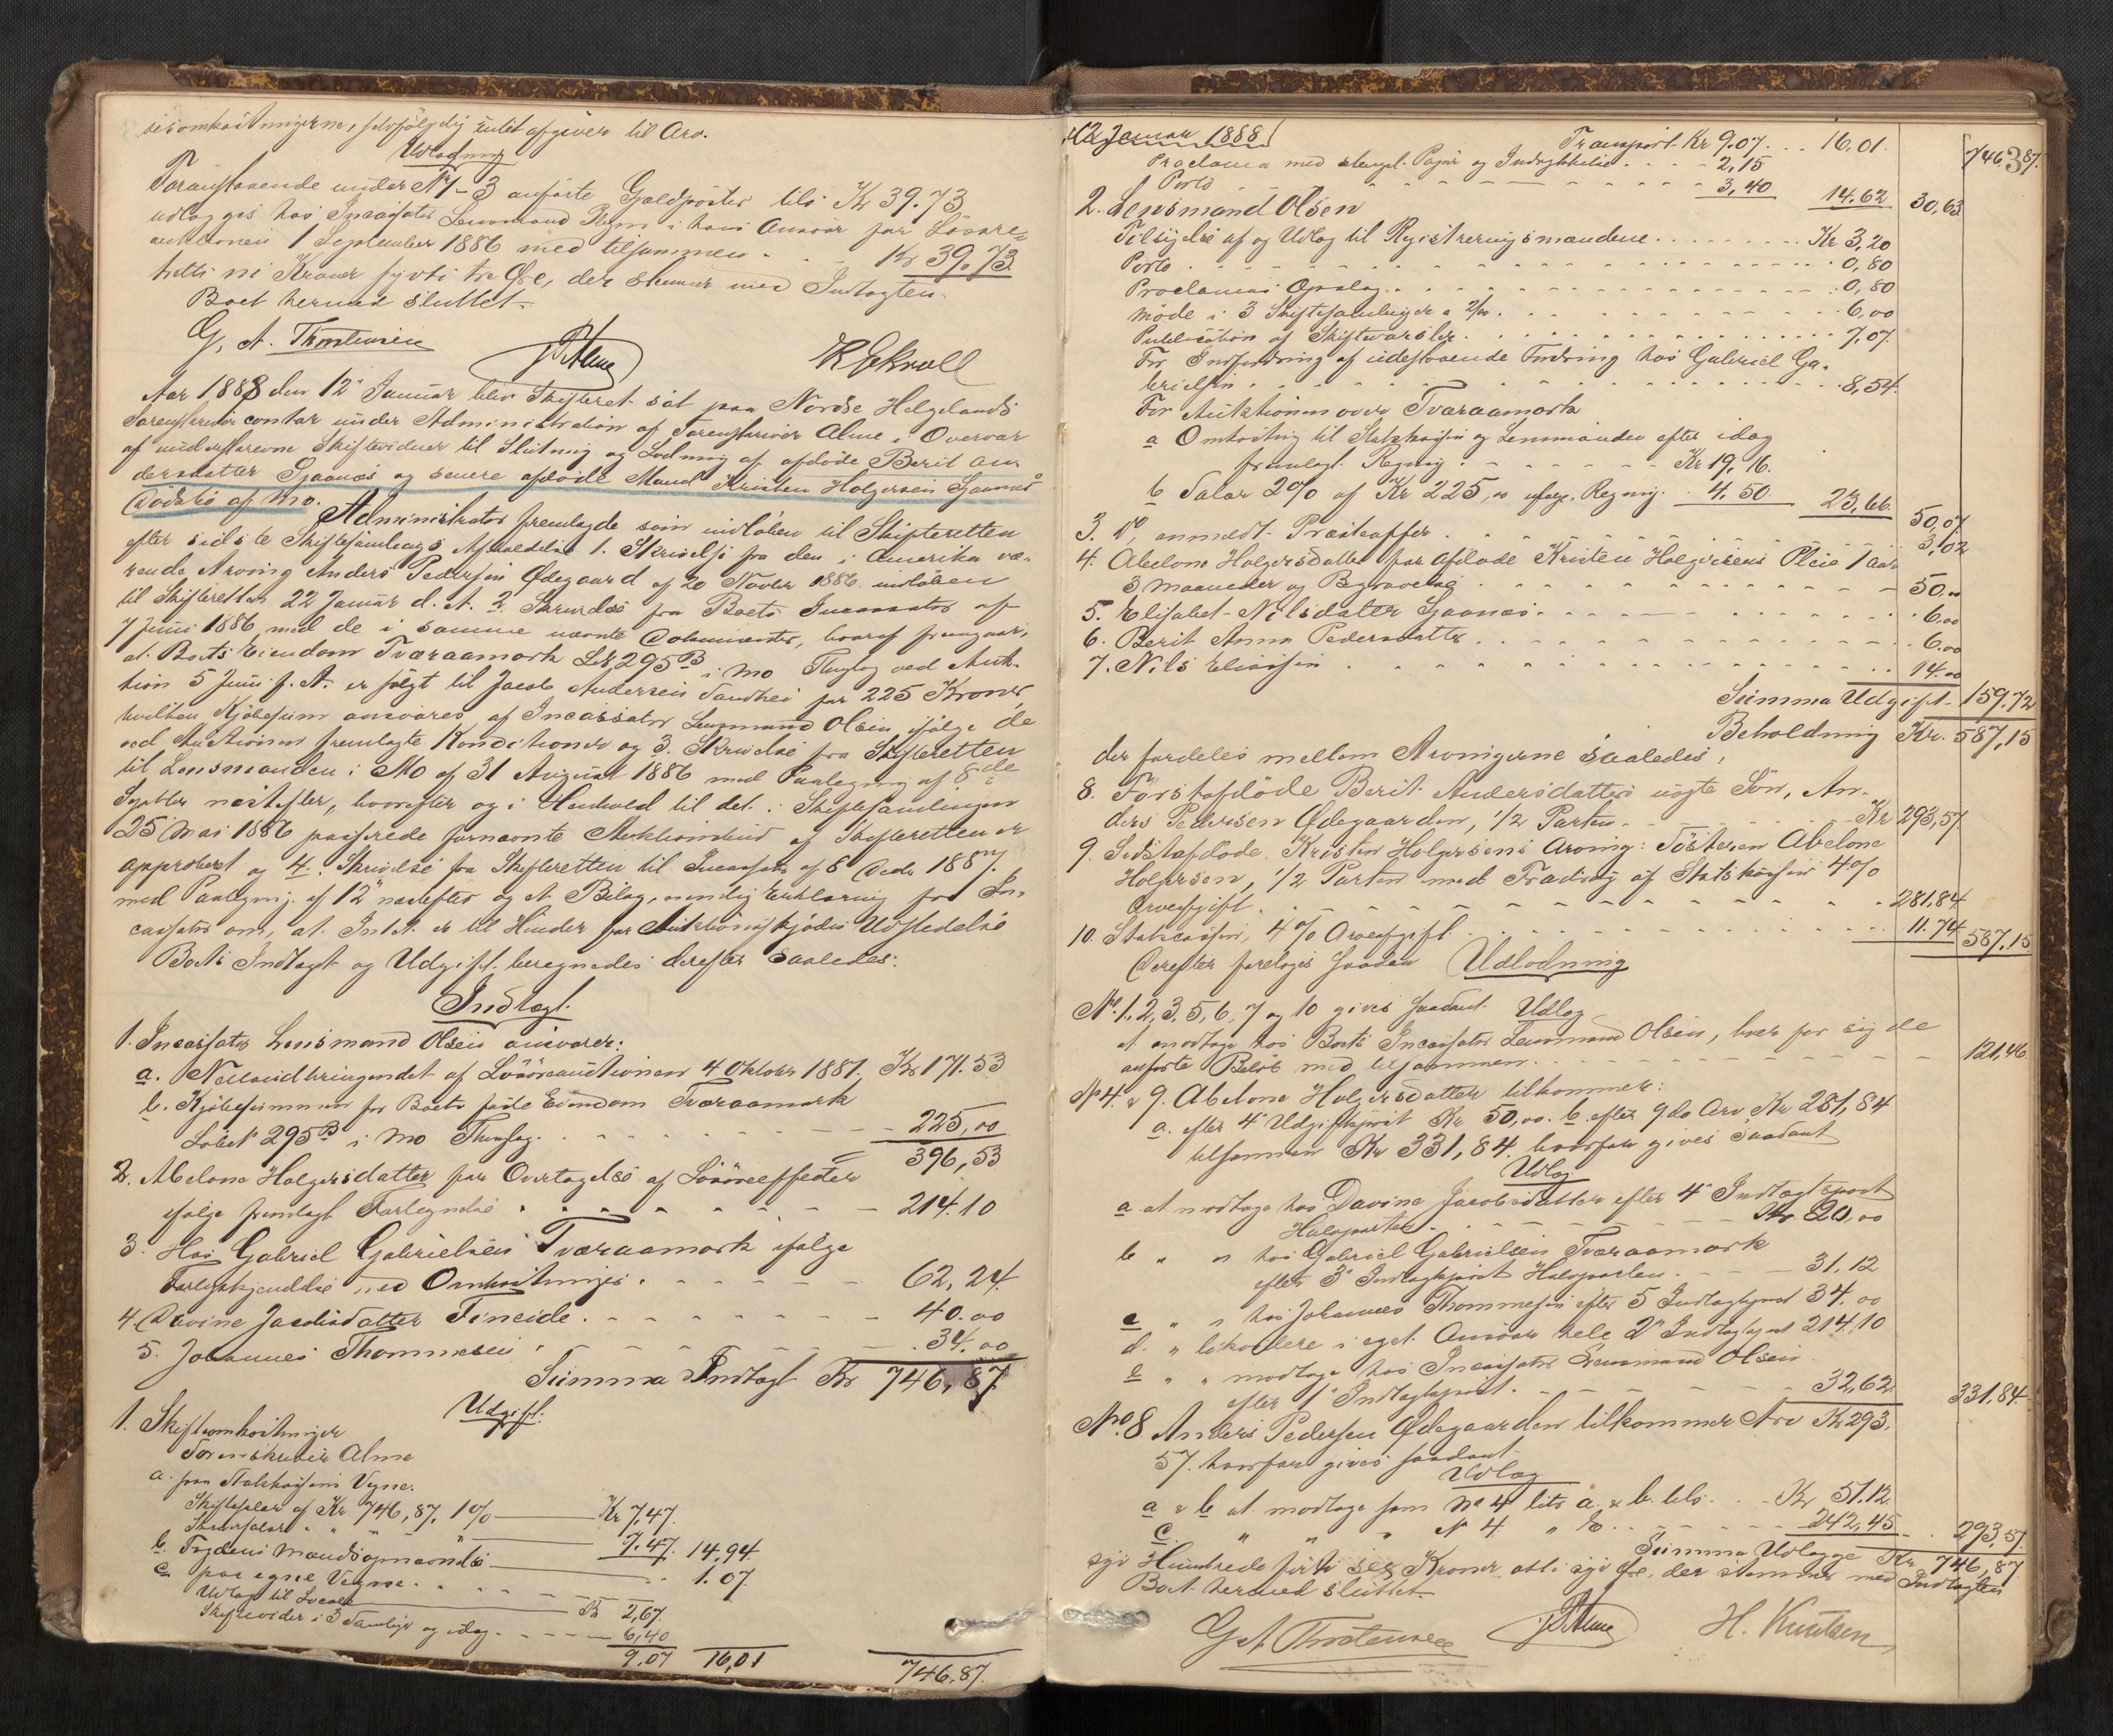 seomkostningerne, selvfølgelig intet afgives til Arv.
Udlodning
Foranstaaende under N 1-3 anførte Gjeldsposter tils. Kr 39.73
udlægges hos Incassator Lensmand i hans Ansvar for Løsøre-
auktionen 1 September 1886 med tilsammen . . . Kr 39.73
tretti ni Kroner sytti tre Øre, der stemmer med Indtægten.
Boet hermed sluttet.
G. A. Thorstensen JAlme
Aar 1888 den 12 Januar blev Skifteret sat paa Nordre Helgelands
Sorenskrivercontor under Administration af Sorenskriver Alme i Overvær
af underskrevne Skiftevidner til Slutning og Lodning af afdøde Berit An-
dersdatter Sjaanæs og senere afdøde Mand Kristen Holgersen Sjaanæs
Dødsbo af Mo. Administrator fremlagde som indløben til Skifteretten
efter sidste Skiftesamlings Afholdelse 1. Skrivelse fra den i Amerika væ-
rende Arving Anders Pedersen Ødegaard af 20 Novbr 1886 indløben
til Skifteretten 22 Januar d. A. 2. Skrivelse fra Boets Incassator af
7 Juni 1886 med de i samme nævnte Documenter, hvoraf fremgaar,
at Boets Eiendom Tværaamark LN 295 B i Mo Thinglag ved Auk-
tion 5 Juni f. A. er solgt til Jacob Andersen Sandhei for 225 Kroner,
hvilken Kjøbesum ansvares af Incassator Lensmand Olsen ifølge de
ved Auctionen fremlagte Konditioner og 3. Skrivelse fra Skifteretten
til Lensmanden i Mo af 31 August 1886 med Paategning af 8de
Septbr næstefter, hvorefter og i Henhold til det i Skiftesamlingen
25 Mai 1886 passerede fornævnte Auktionsbud af Skifteretten er
approberet og 4. Skrivelse fra Skifteretten til Incassator af 8 Decbr 1887
med Paategning af 12 næstefter og et Bilag, nemlig Erklæring fra In-
cassator om, at Intet er til Hinder for Auktionsskjødes Udstedelse
Boets Indtægt og Udgift beregnedes derefter saaledes:
Indtægt
1. Incassator Lensmand Olsen ansvarer:
a. Nettoudbringendet af Løsøreauctionen 4 Oktober 1881. Kr 171.53
b. Kjøbesummen for Boets faste Eiendom Tværaamark
LøbeN 295 B i Mo Thinglag . . . 225,00
396,53
2. Abelone Holgersdatter for Overtagelse af Løsøreeffecter
ifølge fremlagt Fortegnelse . . . 214.10
3. Hos Gabriel Gabrielsen Tværaamark ifølge
Forligskjendelse med Omkostninger . . . 62,24
4. Davine Jacobsdatter Fineide . . . 40.00
5. Johannes Thommesen . . . 34.00
Summa Indtægt Kr 746,87
Udgift:
1. Skifteomkostninger
Sorenskriver Alme
a. paa Statskassens Vegne:
Skiftesalær af Kr 746,87, 1% Kr 7,47
Skriversalær " " " 7.47 14.94
b. Fogdens
c. paa egne Vegne . . . 1.07
Udlæg til Locale Kr 2,67
Skiftevidner i 3 Samlinger og idag . . . 6,40
9.07 16,01
746.87
12 Januar 1888 Transport Kr 9.07 . . 16.01 746.87
3
Proclama med stempl. Papir og . . . 2,15
Porto . . . 3,40 14.62 30,63
2. Lensmand Olsen
Tilsigelse af og Udlæg til Registreringsmændene . . . Kr 3,20
Porto . . . 0,80
Proclamas Opslag . . . 0,80
Møde i 3 Skiftesamlinger a 2/00 . . . 6,00
Publication af Skiftevarsler . . . 7,07
For Inddrivning af udestaaende Fordring hos Gabriel Ga-
brielsen . . . 8,54
For Auktionen over Tværaamark
a Omkostning til Statskassen og Lensmanden efter idag
fremlagt Regning . . . Kr 19,16
b Salær 2% af Kr 225,00 ifølge Regning . . 4,50 23,66 50,07
3. Do, anmeldt Præsteoffer . . . 3,02
4. Abelone Holgersdatter for afdøde Kristen Holgersens Pleie 1 aar
3 Maaneder og Begravelse . . . 50.00
5. Elisabet Nilsdatter Sjaanæs . . . 6.00
6. Berit Anna Pedersdatter . . . 6.00
7. Nils Eliassen . . . 14.00
Summa Udgift 159.72
Beholdning Kr. 587,15
der fordeles mellem Arvingerne saaledes:
8. Førstafdøde Berit Andersdatters uægte Søn, An-
ders Pedersen Ødegaarden, 1/2 Parten . . . Kr 293,57
9. Sidstafdøde Kristen Holgersens Arving: Søsteren Abelone
Holgersen, 1/2 Parten med Fradrag af Statskassens 4%
Arveafgift . . . 281.84
10. Statscassen, 4% Arveafgift . . . 11.74 587.15
Derefter foretoges saadan Udlodning
No. 1, 2, 3, 5, 6, 7 og 10 gives saadant Udlæg
at modtage hos Boets Incassator Lensmand Olsen, hver for sig de
anførte Beløb med tilsammen . . . 121,46
No 4 & 9. Abelone Holgersdatter tilkommer:
a. efter 4 Udgiftspost Kr 50,00. b. efter 9 do Arv Kr 281,84
tilsammen Kr 331,84. hvorfor gives saadant
Udlæg
a at modtage hos Davine Jacobsdatter efter 4 Indtægtspost
Halvparten . . . Kr 20,00
b " " hos Gabriel Gabrielsen Tværaamark
efter 3 Indtægtspost Halvparten . . . 31.12
c " " hos Johannes Thommesen efter 5 Indtægtspost 34.00
d. " likvidere i eget Ansvar hele 2 Indtægtspost 214,10
e " " modtage hos Incassator Lensmand Olsen
efter 1 Indtægtspost . . . 32,62 331,84
No. 8 Anders Pedersen Ødegaarden tilkommer Arv Kr 293.
57. hvorfor gives saadant
Udlæg
a & b at modtage som No 4 litr a. & b. tils. . . Kr 51.12
c. " " " N 4 " e. . . . 242,45 . 293,57
Summa Udlægge Kr 746,87
syv Hundrede førti sex Kroner otti syv Øre, der stemmer med Indtægten
Boet hermed sluttet.
G A Thorstensen JAlme H. Knutsen